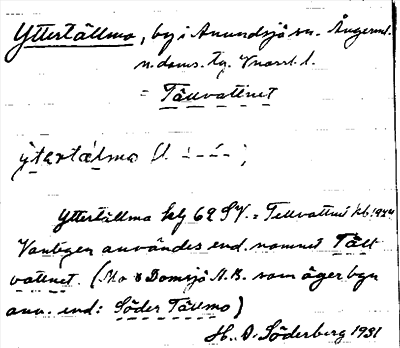 Yttertällmo, by i Anundsjö sn. Ångerml.
n. doms. tg. Vnorrl. l.
= Tällvattnet
ỳtertálmo
Yttertällmo kbl 69 SV. = Tellvattnet kb. 1944
Vanligen användes end. namnet Täll
vattnet. (Mo & Domsjö A.B. som äger byn
anv. end: Söder Tällmo)
H. D. Söderberg 1931